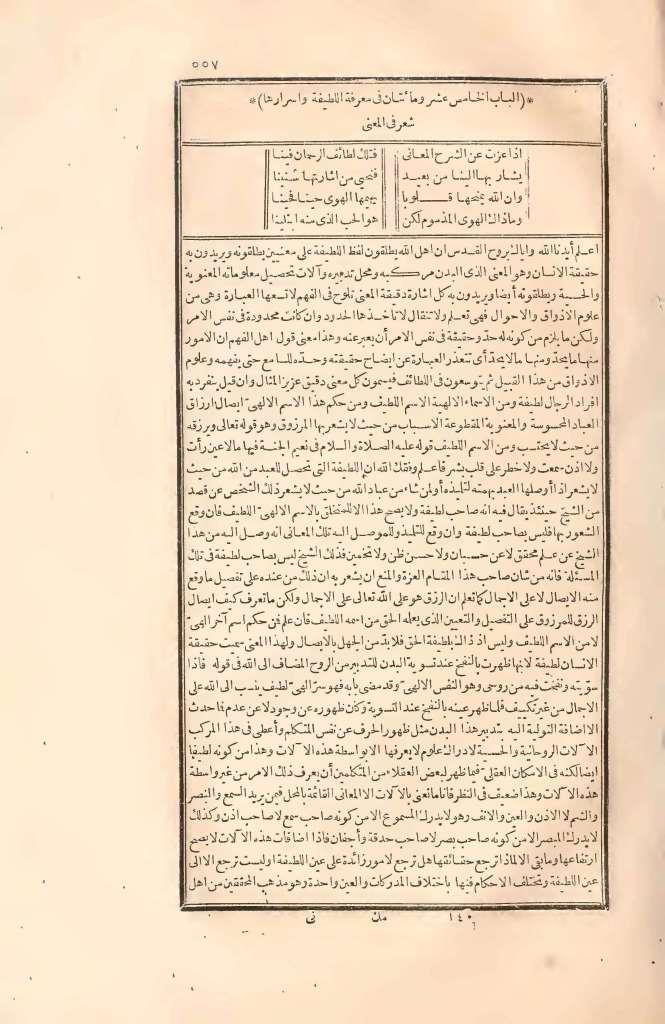 ٥٥٧
*(الباب الخامس عشر ومائتان فى معرفة اللطيفة واسرارها)*
شعر فى المعنى
اذا عزت عن الشرح المعانى فتلك لطائف الرحمان فينا
يشار بها الينا من بعيد فنحيى من اشارتها شنينا
وان الله يمنحها قلوبا يهيمها الهوى حينا فحينا
وماذاك الهوى المذموم لكن هو الحب الذى منه ابتلينا
اعلم أيدنا الله واياك بروح القدس ان اهل الله يطلقون لفظ اللطيفة على معنيين يطلقونه ويريدون به
حقيقة الانسان وهو المعنى الذى البدن مركبه ومحل تدبيره وآلات تحصيل معلوماته المعنوية
والحسية ويطلقونه أيضا ويريدون به كل اشارة دقيقة المعنى تلوح فى الفهم لا تسعها العبارة وهى من
علوم الاذواق والاحوال فهى تعلم ولا تنقال لا تأخذها الحدود وان كانت محدودة فى نفس الامر
ولكن ما يلزم من كونه له حد وحقيقة فى نفس الامر أن يعبر عنه وهذا معنى قول اهل الفهم ان الامور
منها ما يحد ومنها ما لا يحد أى تتعذر العبارة عن ايضاح حقيقته وحده للسامع حتى يفهمه وعلوم
الاذواق من هذا القبيل ثم يتوسعون فى اللطائف فيسمون كل معنى دقيق عزيز المثال وان قيل ينفرد به
افراد الرجال لطيفة ومن الاسماء الالهية الاسم اللطيف ومن حكم هذا الاسم الالهى ايصال ارزاق
العباد المحسوسة والمعنوية المقطوعة الاسباب من حيث لا يشعر بها المرزوق وهو قوله تعالى ويرزقه
من حيث لا يحتسب ومن الاسم اللطيف قوله عليه الصلاة والسلام فى نعيم الجنة فيها ما لا عين رأت
ولا اذن سمعت ولا خطر على قلب بشر فاعلم وفقك الله ان اللطيفة التى تحصل للعبد من الله من حيث
لا يشعر اذا أوصلها العبد بهمته لتلميذه أو لمن شاء من عباد الله من حيث لا يشعر ذلك الشخص عن قصد
من الشيخ حينئذ يقال فيه انه صاحب لطيفة ولا يصح هذا الا للمتخلق بالاسم الالهى اللطيف فان وقع
الشعور بها فليس بصاحب لطيفة وان وقع للتلميذ وللموصل اليه تلك المعانى انه وصل اليه من هذا
الشيخ عن علم محقق لا عن حسبان ولا حسن ظن ولا تخمين فذلك الشيخ ليس بصاحب لطيفة فى تلك
المسئلة فانه من شان صاحب هذا المقام العزة والمنع ان يشعر به ان ذلك من عنده على تفصيل ما وقع
منه الايصال لا على الاجمال كما تعلم ان الرزق هو على الله تعالى على الاجمال ولكن ما تعرف كيف ايصال
الرزق للمرزوق على التفصيل والتعيين الذى يعلمه الحق من اسمه اللطيف فان علم فمن حكم اسم آخر الهى
لا من الاسم اللطيف وليس اذ ذاك بلطيفة الحق فلا بد من الجهل بالايصال ولهذا المعنى سميت حقيقة
الانسان لطيفة لانها ظهرت بالنفخ عند تسوية البدن للتدبير من الروح المضاف الى الله فى قوله فاذا
سويته ونفخت فيه من روحى وهو النفس الالهى وقد مضى بابه فهو سر الهى لطيف ينسب الى الله على
الاجمال من غير تكييف فلما ظهر عينه بالنفخ عند التسوية وكان ظهوره عن وجود لا عن عدم فما حدث
الا اضافة التولية اليه بتدبير هذا البدن مثل ظهور الحرف عن نفس المتكلم وأعطى فى هذا المركب
الآلات الروحانية والحسية لادراك علوم لا يعرفها الا بواسطة هذه الآلات وهذا من كونه لطيفا
ايضا لكنه فى الامكان العقلى فيما ظهر لبعض العقلاء من المتكلمين أن يعرف ذلك الامر من غير واسطة
هذه الآلات وهذا ضعيف فى النظر فانا ما نعنى بالآلات الا المعانى القائمة بالمحل فنحن نريد السمع والبصر
والشم لا الاذن والعين والانف وهو لا يدرك المسموع الا من كونه صاحب سمع لا صاحب اذن وكذلك
لا يدرك المبصر الا من كونه صاحب بصر لا صاحب حدقة وأجفان فاذا اضافات هذه الآلات لا يصح
ارتفاعها وما بقى الا لماذا ترجع حقائقها هل ترجع لامور زائدة على عين اللطيفة او ليست ترجع الا الى
عين اللطيفة وتختلف الاحكام فيها باختلاف المدركات والعين واحدة وهو مذهب المحققين من اهل
١٤٠ مك نى